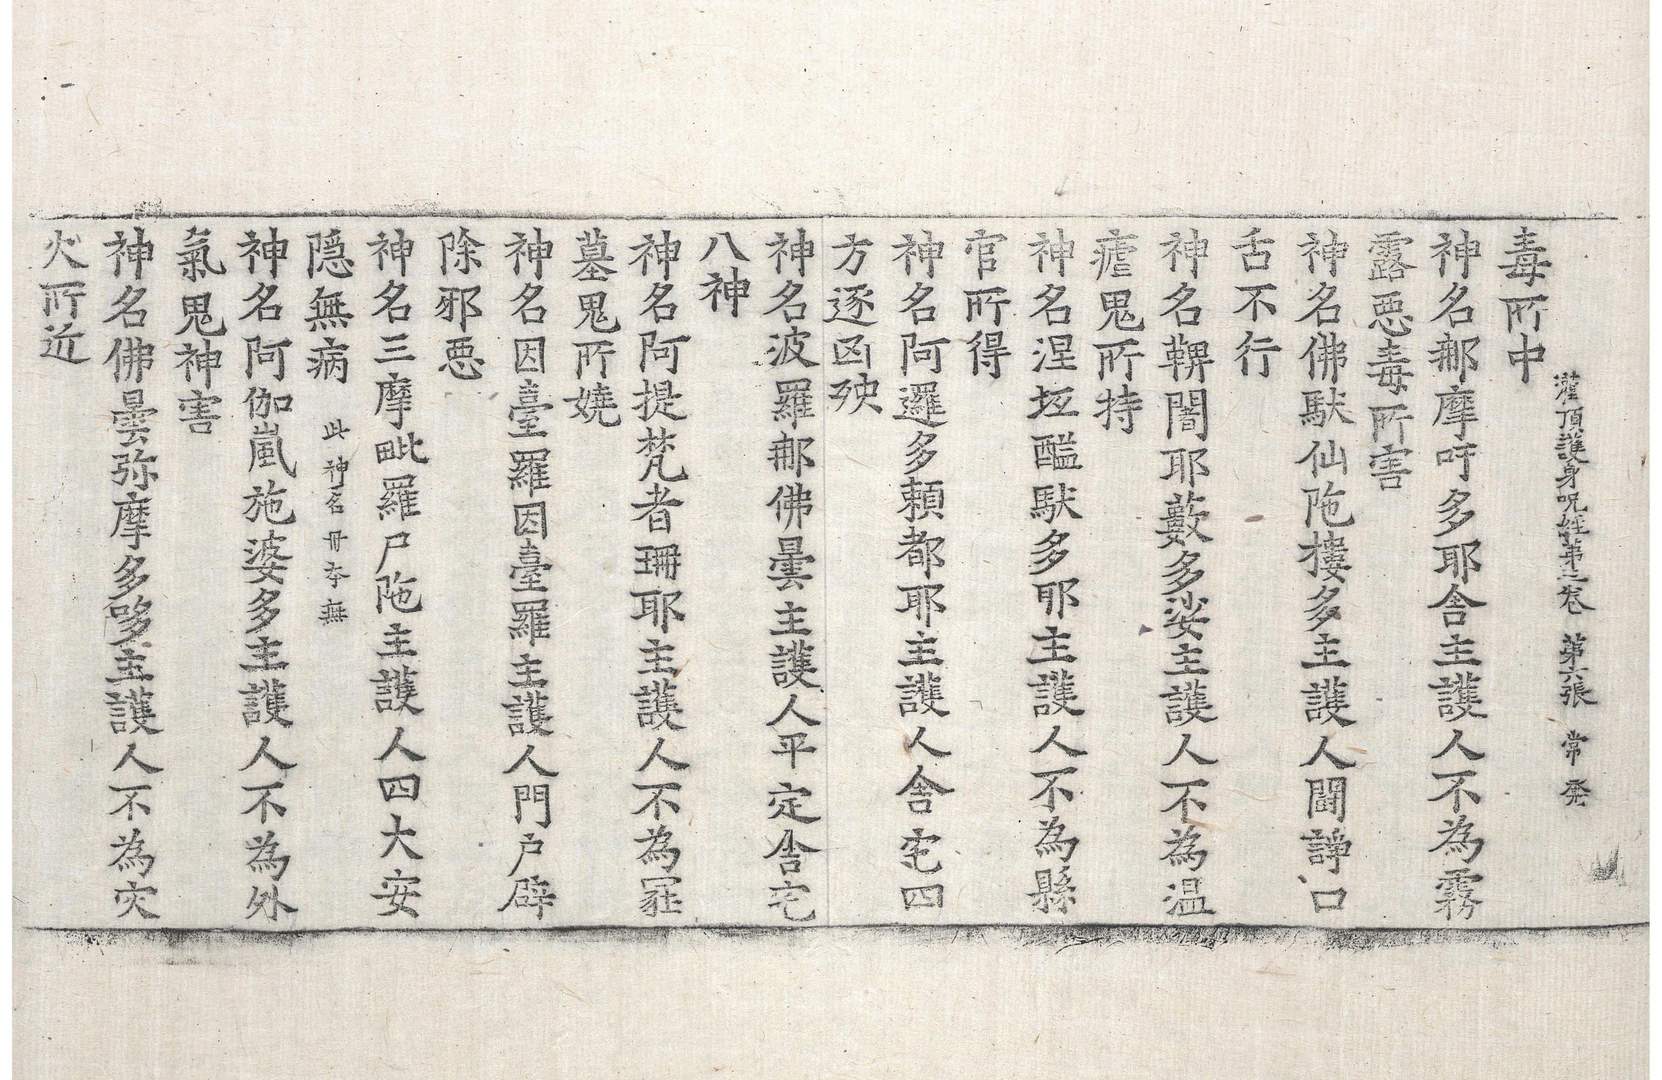 灌頂護身呪經第三卷 第六張 常癸
毒所中
神名郍摩吁多耶舍主護人不為霧
露惡毒所害
神名佛馱仙陁樓多主護人鬪諍口
舌不行
神名鞞闍耶藪多娑主護人不為温
瘧鬼所持
神名涅坻醯馱多耶主護人不為縣
官所得
神名阿邏多頼都耶主護人舍宅四
方逐凶殃
神名波羅郍佛曇主護人平定舍宅
八神
神名阿提梵者珊耶主護人不為冢
墓鬼所嬈
神名因臺羅因臺羅主護人門户辟
除邪惡
神名三摩毗羅尸陁主護人四大安
隱無病 此神名冊夲無
神名阿伽嵐施婆多主護人不為外
氣鬼神害
神名佛曇弥摩多哆主護人不為灾
火所近